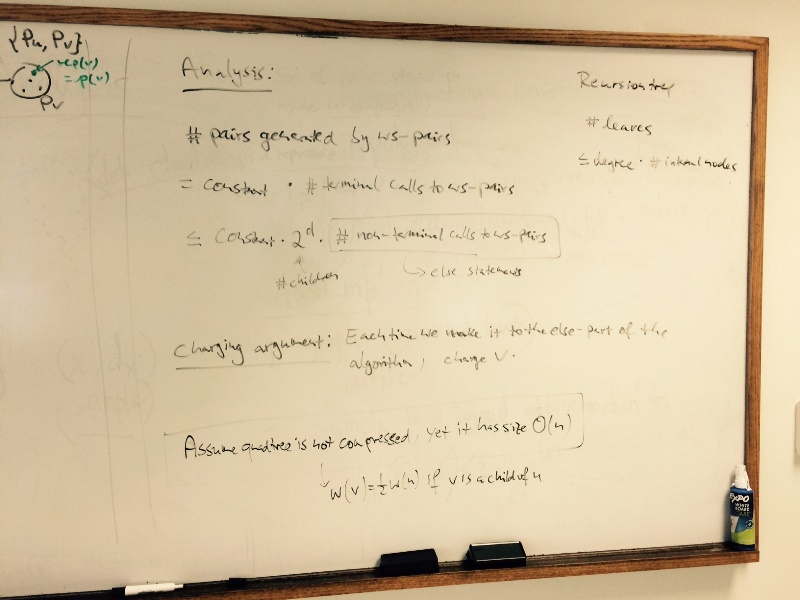 {Pu, Pv}
rep(v)
= p(v)
Pv
Analysis:
# pairs generated by ws-pairs
= constant · # terminal calls to ws-pairs
≤ const · 2^d · # non-terminal calls to ws-pairs
# children
↳ else statements
Recursion tree
# leaves
≤ degree · # internal nodes
Charging argument: Each time we make it to the else-part of the
algorithm, charge v.
Assume quadtree is not compressed, yet it has size O(n)
w(v) = ½ w(u) if v is a child of u
EXPO
WHITE
BOARD
CARE